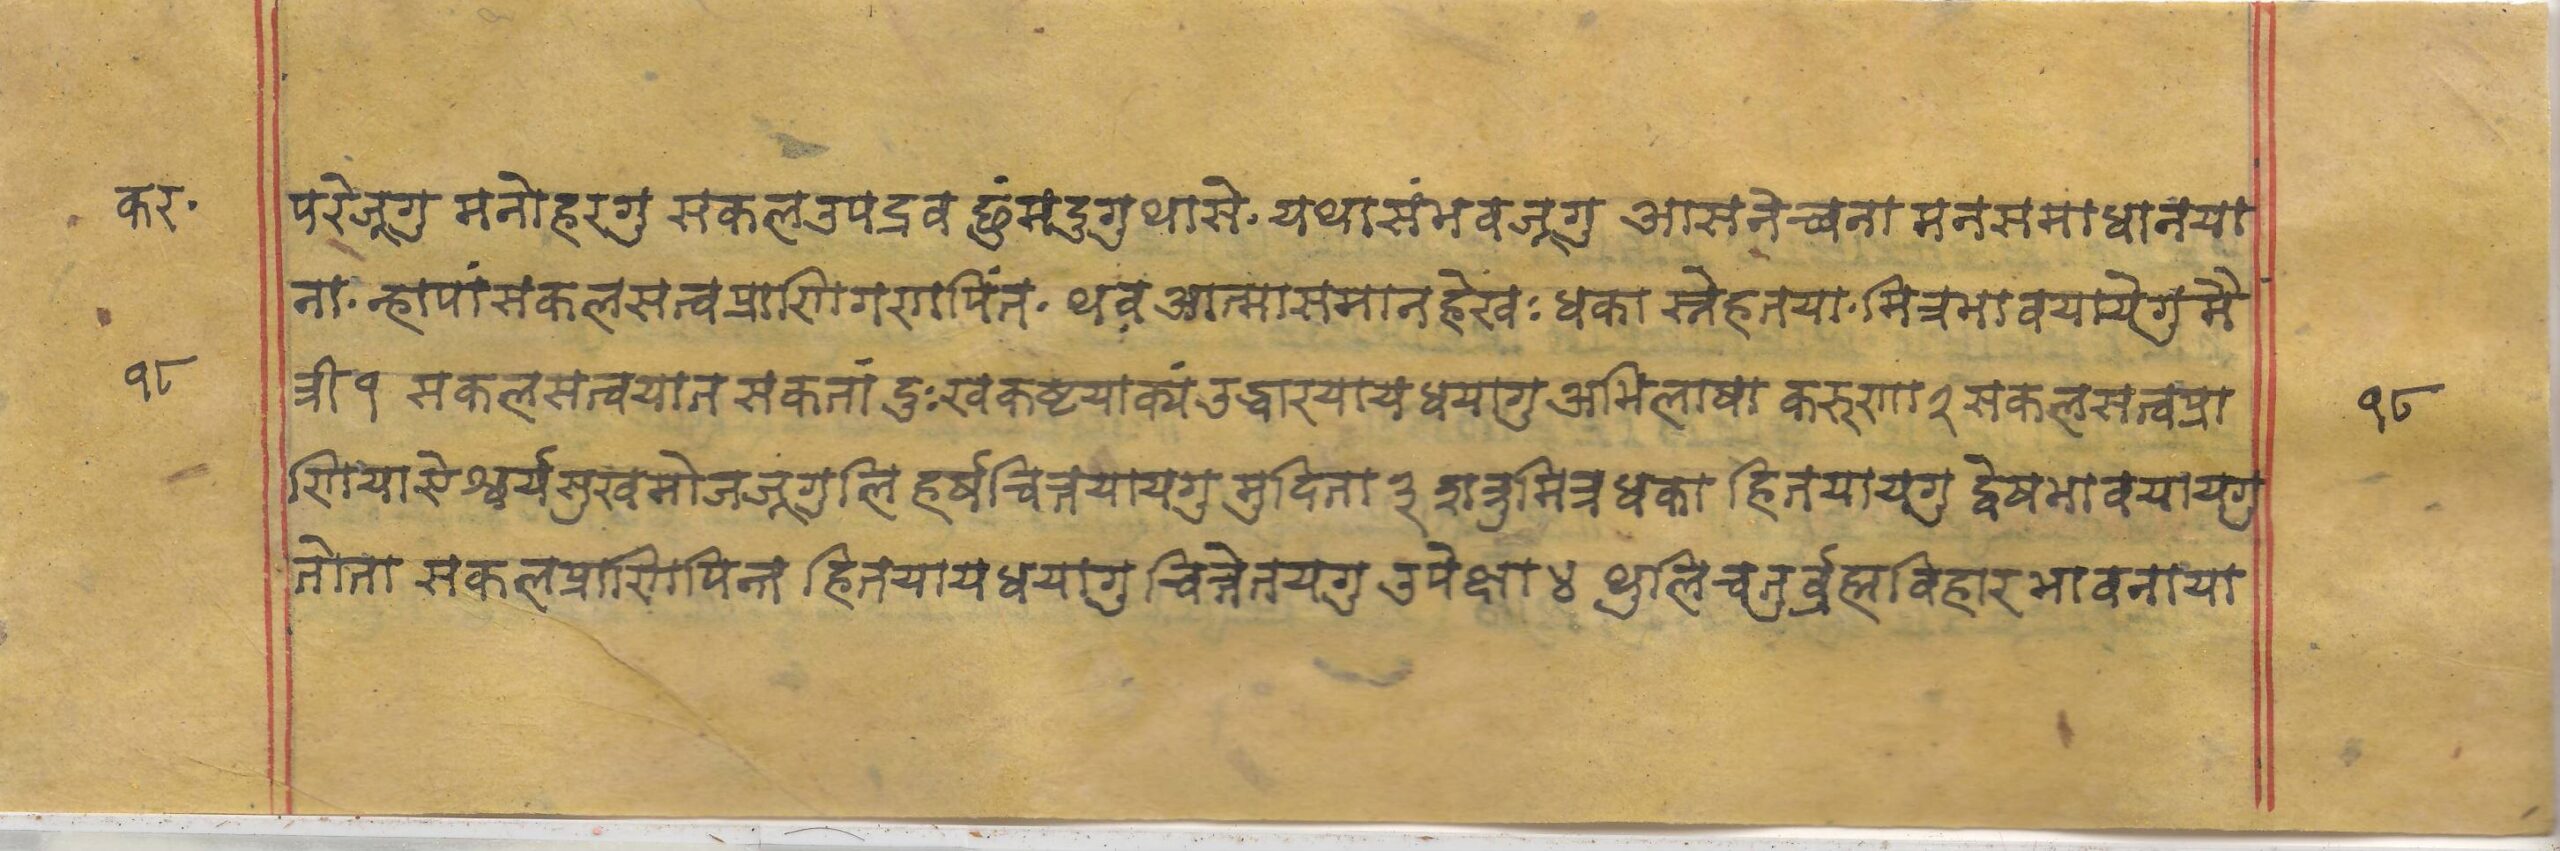 कर· परेजूगु मनोहरगु सकलउपद्रव छुंमदुगुथासे· यथासंभवजूगु आसनेच्वना मनसमाधानया
ना· न्हापांसकलसत्वप्राणिगणपिंत· थवआत्मासमानहेखः धका स्नेहतया· मित्रभावयायेगु मै
१८ त्री १ सकलसत्वयात सकतां दुःखकष्टयाक्यं उद्धारयायधयागु अभिलाषा करुणा २ सकलसत्वप्रा १८
णियाऐश्वर्यसुखमोजजूगुलि हर्षचित्तयायगु मुदिता ३ शत्रुमित्रधका हितयायगु द्वेषभावयायगु
तोता सकलप्राणिपिन्त हितयायधयागु चित्तेतयगु उपेक्षा ४ थुलिचतुर्ब्रह्मविहारभावनाया